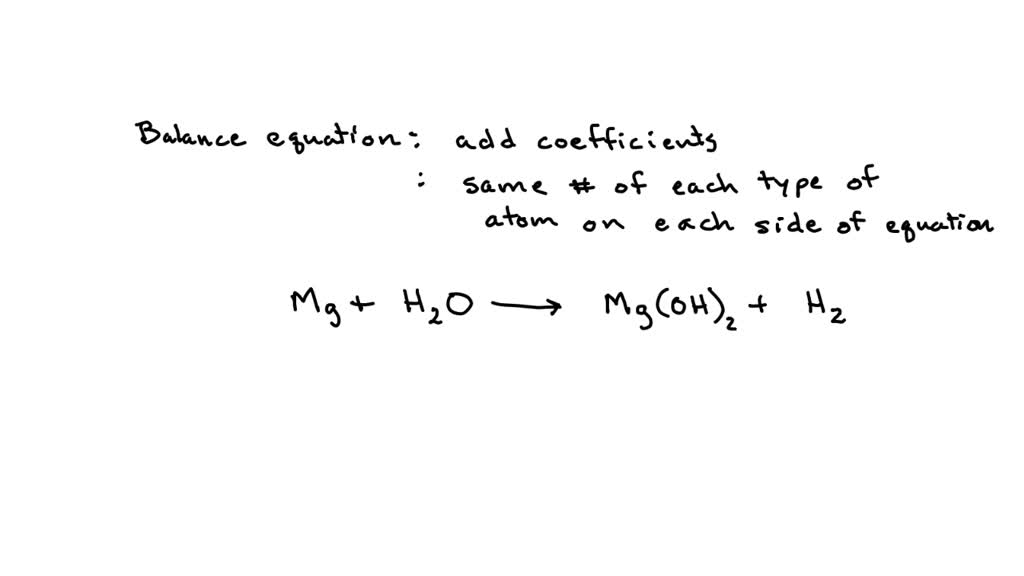 Balance equation: add coefficients
: same # of each type of
atom on each side of equation
Mg + H₂O ⟶ Mg(OH)₂ + H₂